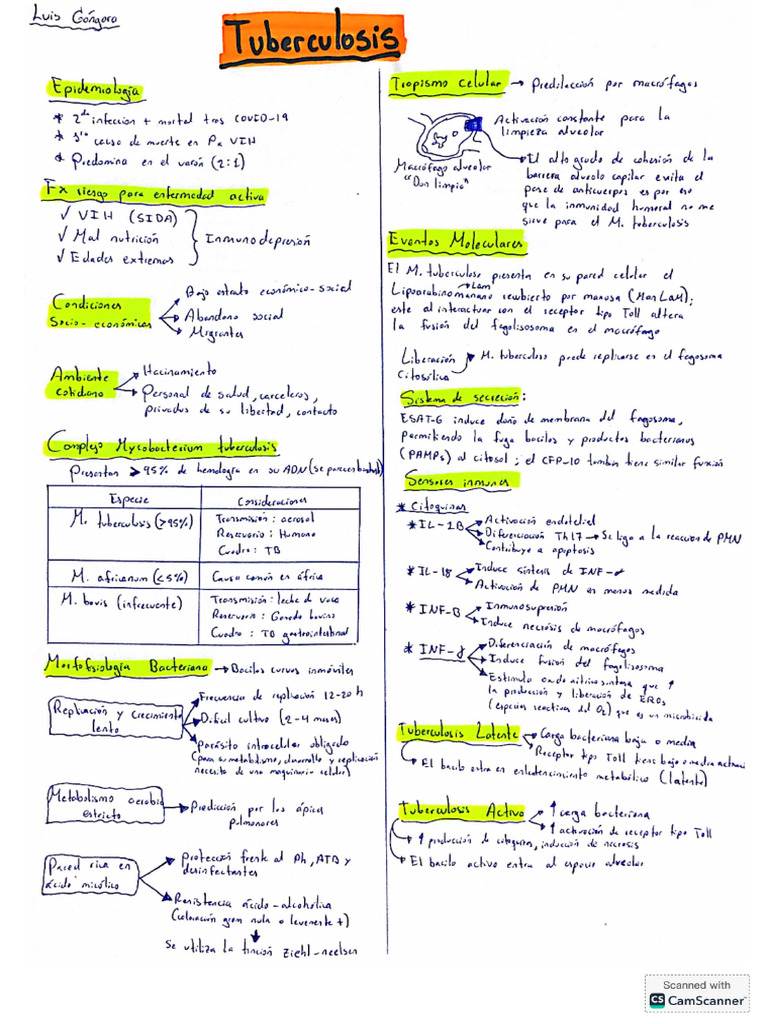 Luis Góngora
Tuberculosis
Epidemiología
* 2da infeccion + mortal tras COVID-19
* 3ra causa de muerte en Pa VIH
* Predomina en el varón (2:1)
Fx riesgo para enfermedad activa
✓ VIH (SIDA)
✓ Mal nutrición
✓ Edades extremas
Inmunodepresión
Condiciones
Socio-económicas
→ Bajo estrato económico-social
→ Abandono social
→ Migrantes
Ambiente
cotidiano
→ Hacinamiento
→ Personal de salud, carceleros,
privados de su libertad, contacto
Complejo Mycobacterium tuberculosis
Presentan > 95% de homología en su ADN (se parecen bastante)
Especie
Consideraciones
M. tuberculosis (>95%)
Transmisión: aerosol
Reservorio: Humano
Cuadro: TB
M. africanum (<5%)
Causa común en áfrica
M. bovis (infrecuente)
Transmisión: leche de vaca
Reservorio: Ganado bovino
Cuadro: TB gastrointestinal
Morfofisiología Bacteriana → Bacilos curvos inmóviles
Replicación y crecimiento
lento
→ Frecuencia de replicación 12-20 h
→ Dificil cultivo (2-4 meses)
→ Parásito intracelular obligado
(para su metabolismo, desarrollo y replicación
necesita de una maquinaria celular)
Metabolismo aerobio
estricto
→ Predicción por los ápices
pulmonares
Pared rica en
ácido micólico
→ Protección frente al Ph, ATB y
desinfectantes
→ Resistencia ácido-alcoholica
(coloración gram nula o levemente +)
Se utiliza la tinción Ziehl-neelsen
Tropismo Celular → Predilección por macrófagos
Macrófago alveolar
"Don limpio"
Activación constante para la
limpieza alveolar
→ El alto grado de cohesión de la
barrera alveolo capilar evita el
pase de anticuerpos es por eso
que la inmunidad humoral no me
sirve para el M. tuberculosis
Eventos Moleculares
El M. tuberculoso presenta en su pared celular el
Lam
Lipoarabinomanano recubierto por manosa (Man LaM);
este al interactuar con el receptor tipo Toll altera
la fusión del fagolisosoma en el macrófago
Liberación
Citosólica
→ M. tuberculoso puede replicarse en el fagosoma
Sistema de secreción:
ESAT-6 induce daño de membrana del fagosoma,
Permitiendo la fuga bacilos y productos bacterianos
(PAMPs) al citosol; el CFP-10 tambien tiene similar función
Sensores inmunes
* Citoquinas
* IL-1B
→ Activación endotelial
→ Diferenciación Th17 → Se liga a la reaccion de PMN
→ Contribuye a apoptosis
* IL-18
→ Induce síntesis de INF-γ
→ Activación de PMN en menos medida
* INF-B
→ Inmunosupresión
→ Induce necrósis de macrófagos
* INF-γ
→ Diferenciación de macrófagos
→ Induce fusión del fagolisosoma
→ Estimula oxido nitrico sintasa que ↑
la producción y liberación de EROs
(especies reactivas del O2) que es un microbicida
Tuberculosis Latente
→ Carga bacteriana baja o media
→ Receptor tipo Toll tiene baja o media activaci
→ El bacilo entra en enlentecimiento metabólico (latente)
Tuberculosis Activa
→ ↑ carga bacteriana
→ ↑ activación de receptor tipo Toll
→ ↑ producción de citoquinas, inducción de necrosis
→ El bacilo activo entra al espacio alveolar
Scanned with
CS CamScanner